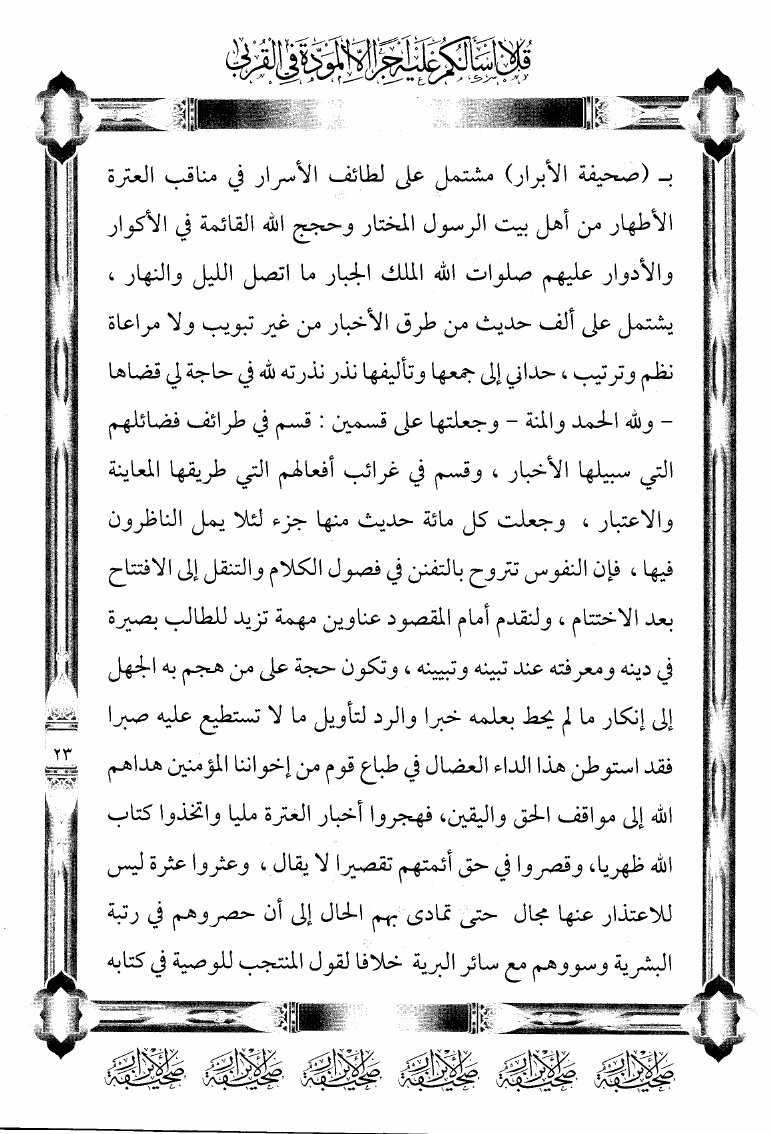 قل لا أسألكم عليه أجرا إلا المودة في القربى
بـ (صحيفة الأبرار) مشتمل على لطائف الأسرار في مناقب العترة
الأطهار من أهل بيت الرسول المختار وحجج الله القائمة في الأكوار
والأدوار عليهم صلوات الله الملك الجبار ما اتصل الليل والنهار ،
يشتمل على ألف حديث من طرق الأخبار من غير تبويب ولا مراعاة
نظم وترتيب ، حداني إلى جمعها وتأليفها نذر نذرته لله في حاجة لي قضاها
– ولله الحمد والمنة – وجعلتها على قسمين : قسم في طرائف فضائلهم
التي سبيلها الأخبار ، وقسم في غرائب أفعالهم التي طريقها المعاينة
والاعتبار ، وجعلت كل مائة حديث منها جزء لئلا يمل الناظرون
فيها ، فإن النفوس تتروح بالتفنن في فصول الكلام والتنقل إلى الافتتاح
بعد الاختتام ، ولنقدم أمام المقصود عناوين مهمة تزيد للطالب بصيرة
في دينه ومعرفته عند تبينه وتبيينه ، وتكون حجة على من هجم به الجهل
إلى إنكار ما لم يحط بعلمه خبرا والرد لتأويل ما لا تستطيع عليه صبرا
فقد استوطن هذا الداء العضال في طباع قوم من إخواننا المؤمنين هداهم
الله إلى مواقف الحق واليقين، فهجروا أخبار العترة مليا واتخذوا كتاب
الله ظهريا، وقصروا في حق أئمتهم تقصيرا لا يقال ، وعثروا عثرة ليس
للاعتذار عنها مجال حتى تمادى بهم الحال إلى أن حصروهم في رتبة
البشرية وسووهم مع سائر البرية خلافا لقول المنتجب للوصية في كتابه
٢٣
صحيفة الأبرار صحيفة الأبرار صحيفة الأبرار صحيفة الأبرار صحيفة الأبرار صحيفة الأبرار